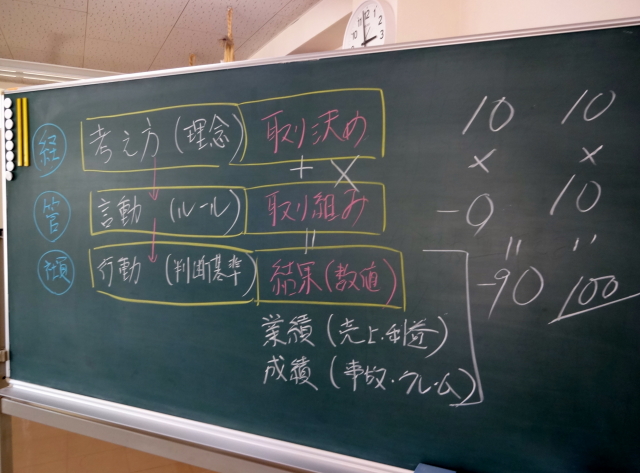 経 考え方（理念） 取り決め
＋ ×
管 言動（ルール） 取り組み
＝
顧 行動（判断基準） 結果（数値）
業績（売上・利益）
成績（事故・クレーム）
10 10
× ×
-9 10
＝ ＝
-90 100